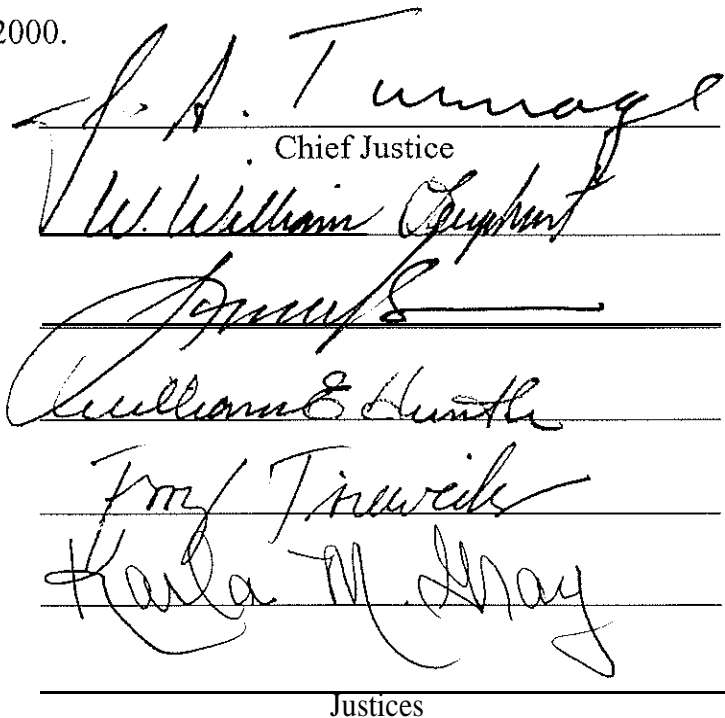 2000.
J. A. Turnage
Chief Justice
W. William Leaphart
William E Hunt Jr
Terry Trieweiler
Karla M. Gray
Justices